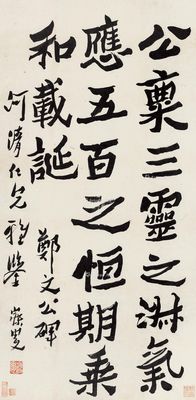 公稟三靈之淋氣
應五百之恒期乘
和載誕
鄭文公碑
河清仁兄雅鑒